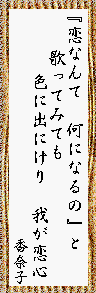 『恋なんて 何になるの』と
歌ってみても
色に出にけり 我が恋心
香奈子